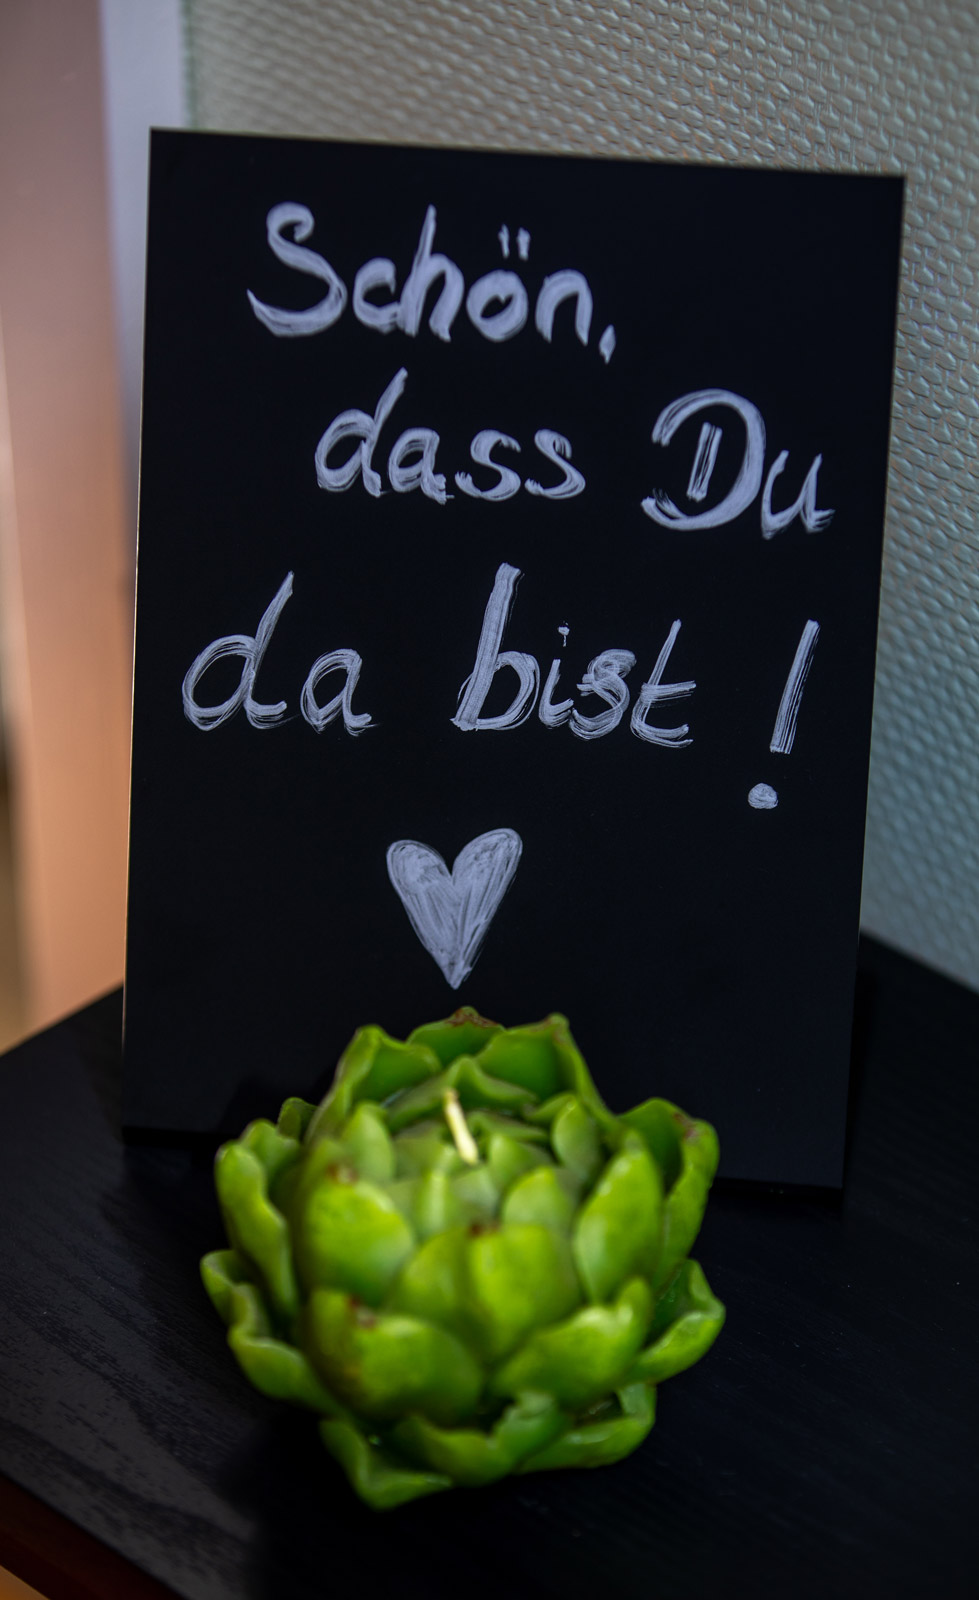 Schön,
dass Du
da bist !